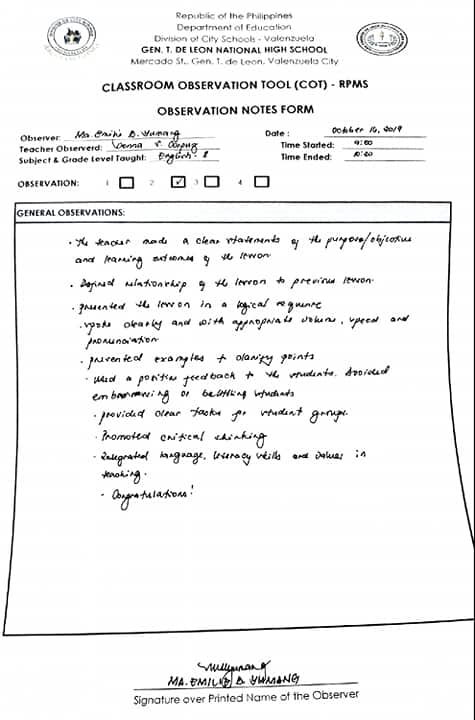 Republic of the Philippines
Department of Education
Division of City Schools - Valenzuela
GEN. T. DE LEON NATIONAL HIGH SCHOOL
Mercado St., Gen. T. de Leon, Valenzuela City
CLASSROOM OBSERVATION TOOL (COT) - RPMS
OBSERVATION NOTES FORM
Observer: Ma. Emilie D. Yumang Date : October 16, 2019
Teacher Observerd: Time Started: 9:20
Subject & Grade Level Taught: English - 8 Time Ended: 10:20
OBSERVATION: 1 2 ✓ 3 4
GENERAL OBSERVATIONS:
· The teacher made a clear statements of the purpose/objective
and learning outcomes of the lesson
· Defined relationship of the lesson to previous lesson
· Presented the lesson in a logical sequence
· spoke clearly and with appropriate volume, speed and
pronunciation
· presented examples to clarify points
· Used a positive feedback to the students. Avoided
embarrassing or belittling students
· provided clear tasks for student groups.
· Promoted critical thinking
· Integrated language, literacy skills and values in
teaching.
· Congratulations!
MA. EMILIE D. YUMANG
Signature over Printed Name of the Observer